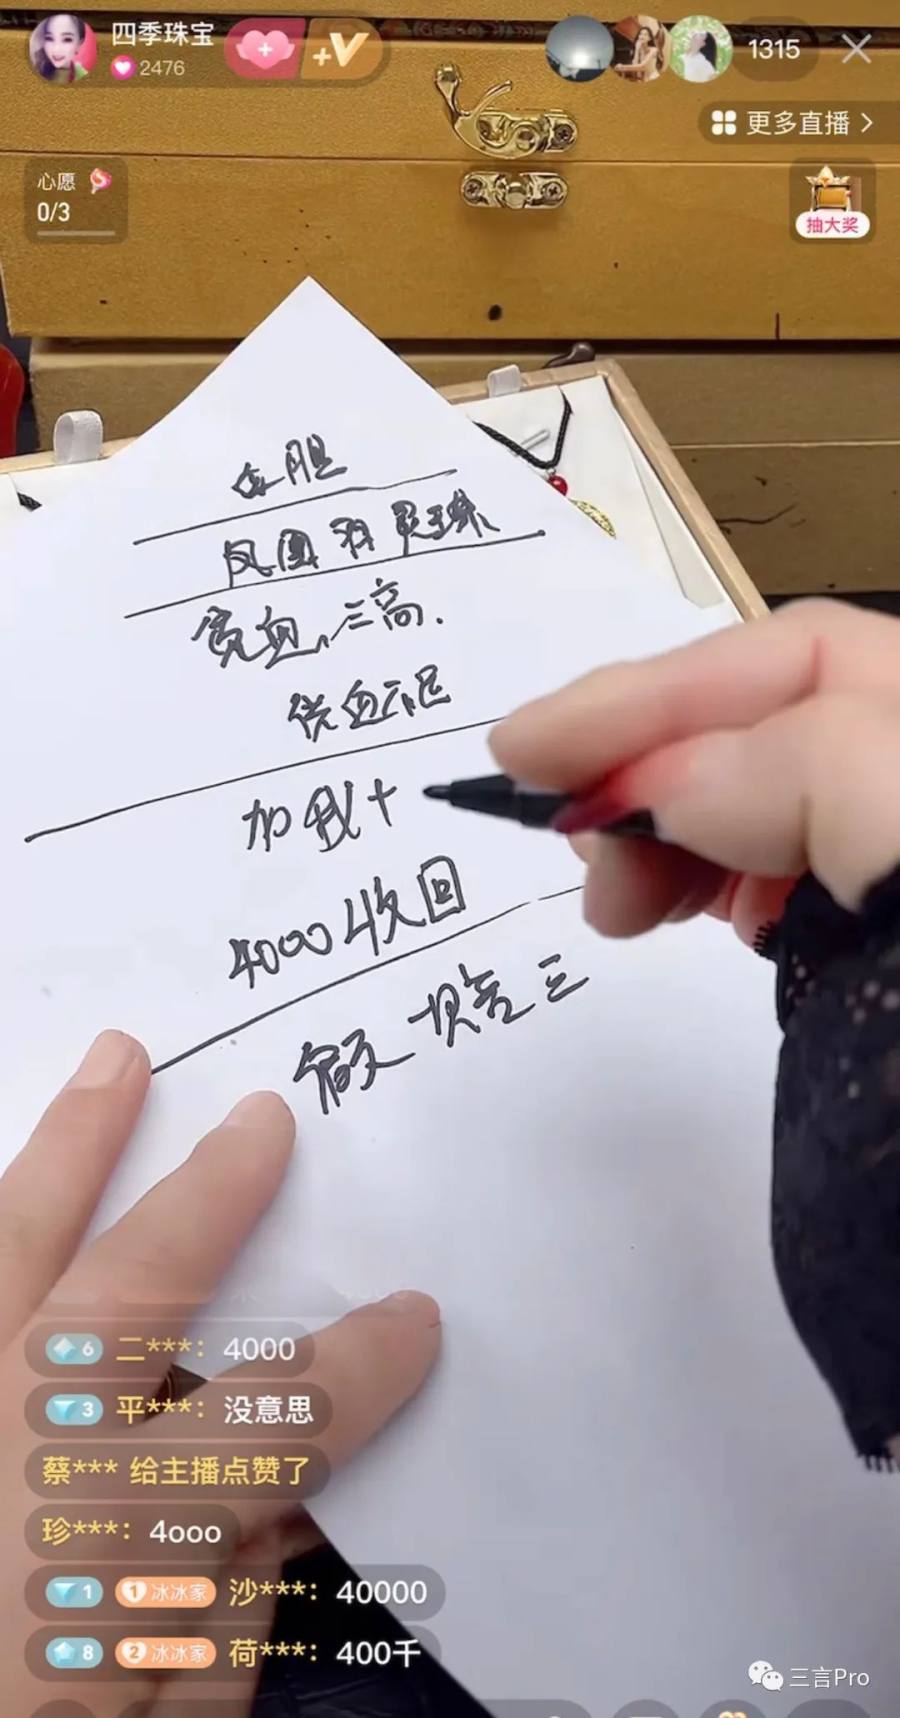 四季珠宝
2476
+V
1315
更多直播
心愿
0/3
抽大奖
凤凰羽灵珠
贫血、三高.
供血不足
加我+
4000收回
假一赔三
6 二***: 4000
3 平***: 没意思
蔡*** 给主播点赞了
珍***: 4ooo
1 1 冰冰家 沙***: 40000
8 2 冰冰家 荷***: 400千
三言Pro